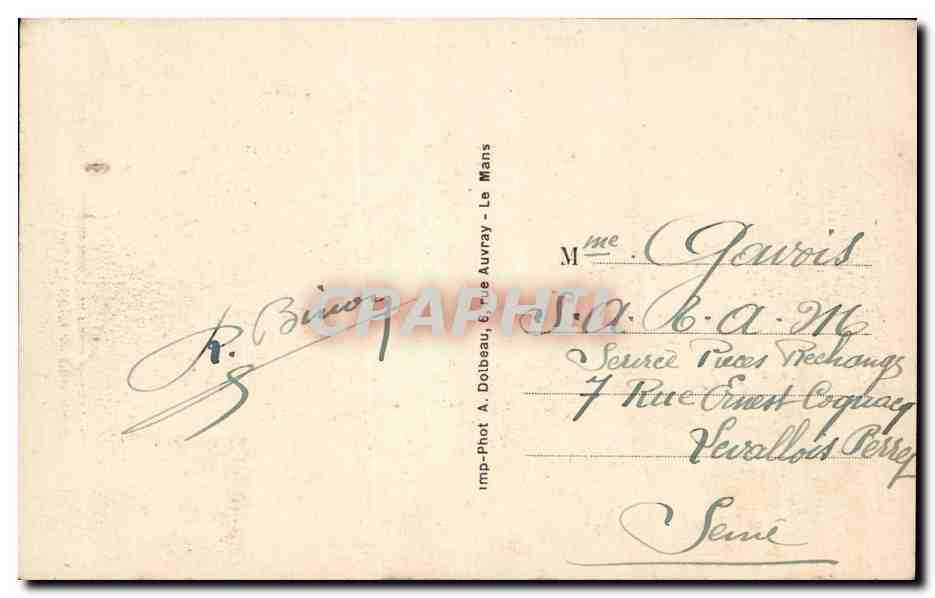 R. Binoy
Imp-Phot A. Dolbeau, 6, rue Auvray - Le Mans
CRAPHIL
Mme. Gavois
S.A.T.A.M
Service Pièces Rechange
7 Rue Ernest Cognacq
Levallois Perret
Seine